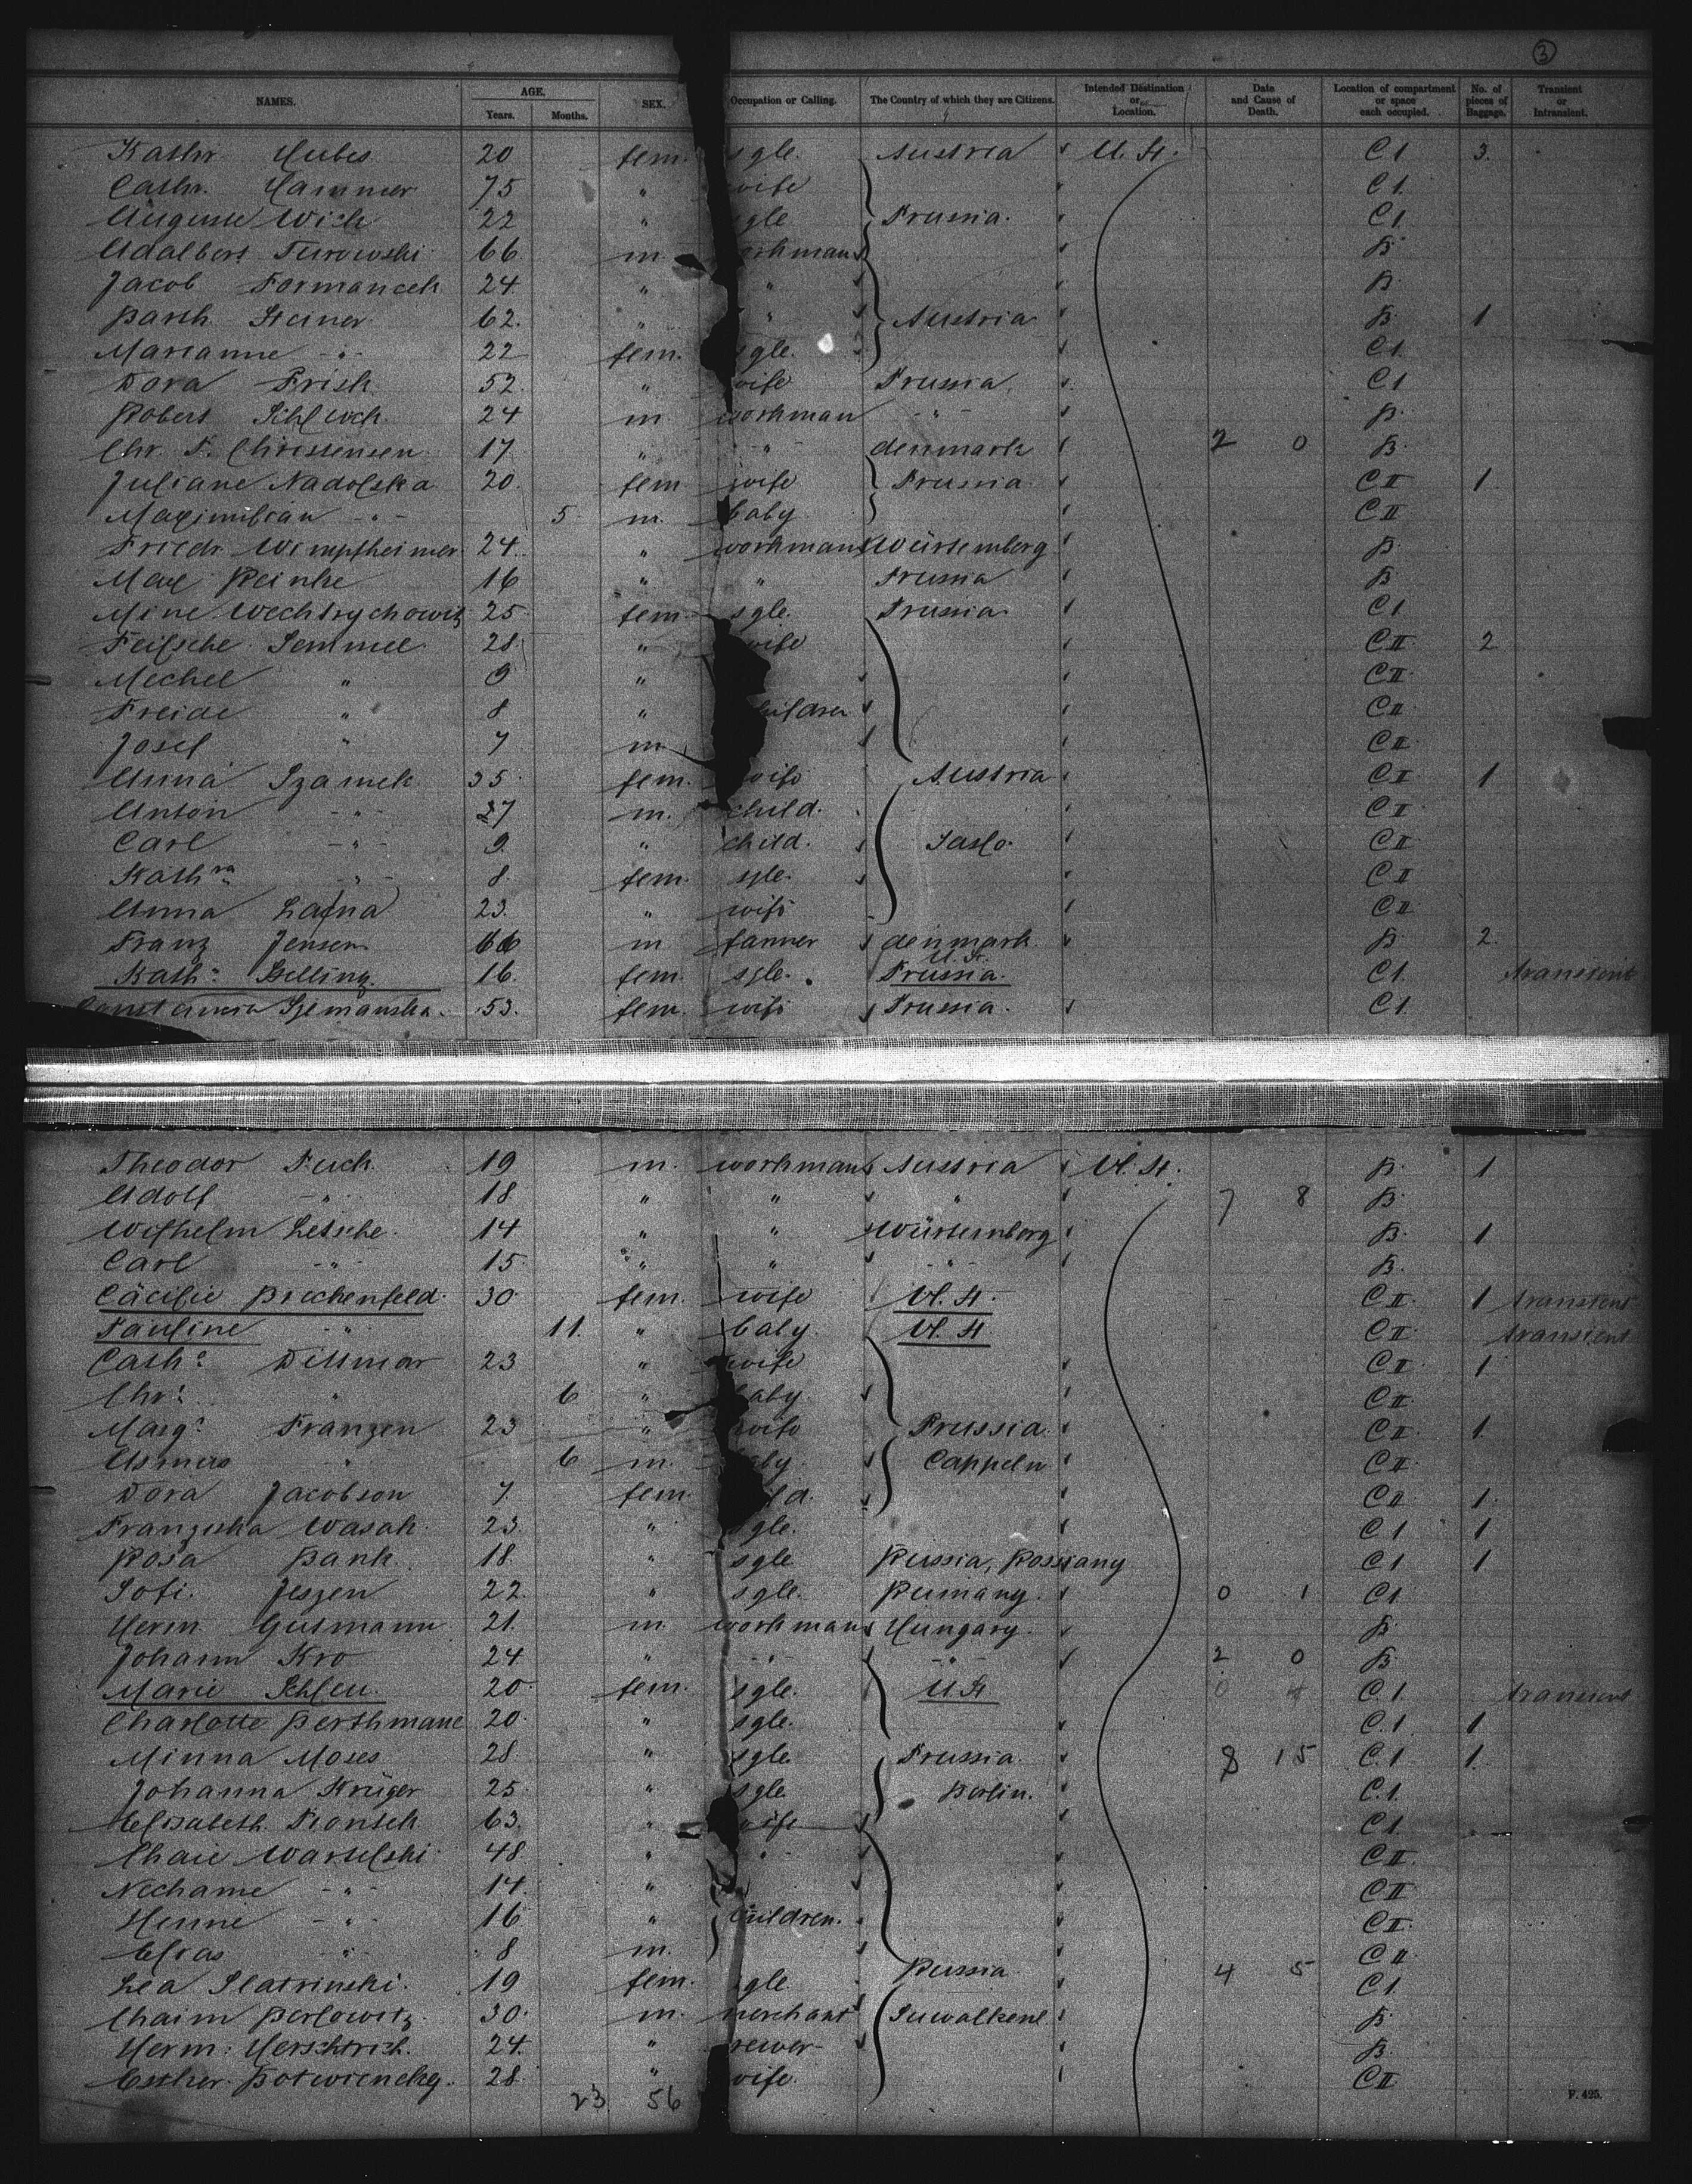 3
NAMES. AGE. Years. Months. SEX. Occupation or Calling. The Country of which they are Citizens. Intended Destination or Location. Date and Cause of Death. Location of compartment or space each occupied. No. of pieces of Baggage. Transient or Intransient.
Kathr. Hubes 20 fem. sgle. Austria U. St. C I. 3.
Cathr. Hammer 75 " wife C I.
Auguste Wich 22 " sgle Prussia. C I.
Adalbert Turowski 66 m. workman B.
Jacob Formancek 24 " " B.
Barth. Steiner 62. " " Austria B. 1
Marianne -"- 22 fem. sgle. C I.
Dora Frish 52. " wife Prussia. C I
Robert 24 m. workman -"- B.
Chr. P. Christensen 17. " -"- denmark 2 0 B.
Juliane Nadolska 20. fem wife Prussia C II 1
Maximilian -"- 5 m. baby C II
Friedr. Wimpfheimer 24. " workman Würtemberg B.
Max Reinke 16 " " Prussia B
Mine 25 fem. sgle. Prussia. C I
Feilsche Semmel 28. " wife C II. 2
Mechel " 9 " C II.
Freide " 8 " children C II
Josef " 7 m C II
Anna Szamek 35. fem. wife Austria C II 1
Anton -"- 7 m. child. C II
Carl -"- 9. " child. Jaslo. C II
Kathna -"- 8. fem. sgle. C II
Anna 23. " wife C II
Franz Jensen 66 m farmer denmark B. 2.
U. St.
Kath. Belling. 16. fem. sgle. Prussia. C I. transient
Szemanska. 53. fem. wife Prussia. C I.
Theodor Fuch 19 m. workman Austria U. St. B. 1
Adolf -"- 18 " " " 7 8 B.
Wilhelm Letsche. 14 " " Würtemberg B. 1
Carl -"- 15. " " -"- B.
Cäcilie Brechenfeld. 30. fem. wife U. St. C II. 1 transient
Pauline -"- 11. " baby U. St C II transient
Cath. Dittmar 23 " wife C II 1
Chr. " 6 " baby C II
Marg. Franzen 23 " wife Prussia. C II 1.
Asmus " 6 m. baby Cappeln C II
Dora Jacobson 7. fem. child. C II 1.
Franziska Wasak. 23. " sgle. C I 1
Rosa Bank 18. " sgle Russia, C I 1
Sofi. Jeszen 22. " sgle. Rumany. 0 1 C I.
Herm Gutmann 21. m. workman Hungary. B.
Johann Kro 24 " -"- -"- 2 0 B
Marie Schleu. 20. fem. sgle. U. St C I. transient
Charlotte 20. " sgle. C. I 1
Minna Moses 28 " sgle. Prussia. 8 15 C. I 1.
Johanna Krüger 25. " sgle Berlin. C. I.
Elisabeth 63. " wife C I.
Chaie 48 " -"- C II.
Nechame -"- 14. " C II
Henne -"- 16 " children. C II.
Elias -"- 8 m. C II
Lea Slatrinski. 19 fem. sgle Russia 4 5 C I.
Chaim Berlowitz 30. m. merchant B.
Herm. 24. " B.
Esther. 28. " wife. C II
23 56
F. 425.